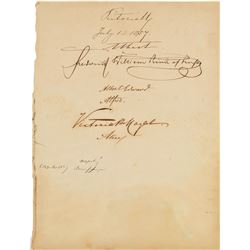 Victoria R
July 12 1857
Albert
Frederick William Prince of Prussia
Albert Edward
Alfred.
Victoria Pss Royal
Alice